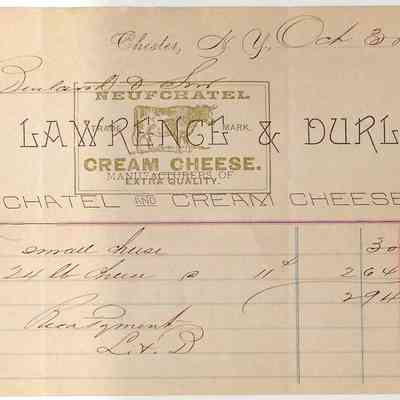 Chester, N.Y. Oct 30
& Son
NEUFCHATEL
TRADE MARK.
LAWRENCE & DURL
CREAM CHEESE.
MANUFACTURERS OF
EXTRA QUALITY.
CHATEL AND CREAM CHEESE
small cheese 30
24 lb cheese @ 11¢ 2 64
2 94
Rec'd Payment
L. & D